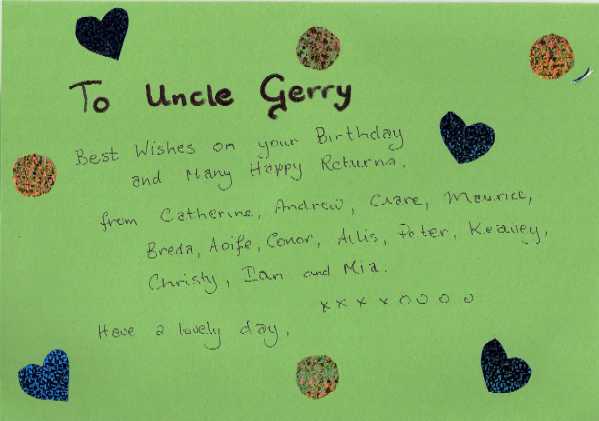 To Uncle Gerry
Best Wishes on your Birthday
and Many Happy Returns.
from Catherine, Andrew, Clare, Maurice,
Breda, Aoife, Conor, Ailis, Peter, Keavey,
Christy, Ian and Mia.
x x x x o o o o
Have a lovely day.